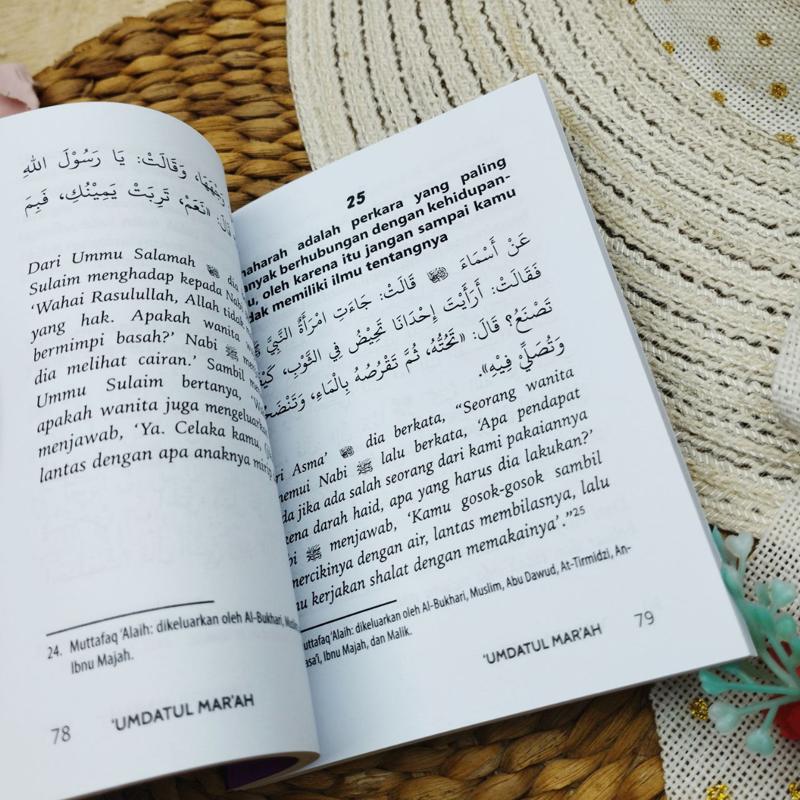 وَجْهَهَا، وَقَالَتْ: يَا رَسُوْلَ اللهِ
قَالَ: «نَعَمْ، تَرِبَتْ يَمِيْنُكِ، فَبِمَ
Dari Ummu Salamah
Sulaim menghadap kepada Nabi
'Wahai Rasulullah, Allah tidak
yang hak. Apakah wanita
bermimpi basah?' Nabi ﷺ
dia melihat cairan.' Sambil
Ummu Sulaim bertanya,
apakah wanita juga mengeluarkan
menjawab, 'Ya. Celaka kamu,
lantas dengan apa anaknya mirip
24. Muttafaq 'Alaih: dikeluarkan oleh Al-Bukhari,
Ibnu Majah.
78 'UMDATUL MAR'AH
25
adalah perkara yang paling
berhubungan dengan kehidupan-
oleh karena itu jangan sampai kamu
memiliki ilmu tentangnya
عَنْ أَسْمَاءَ قَالَتْ: جَاءَتِ امْرَأَةٌ النَّبِيَّ
فَقَالَتْ: أَرَأَيْتَ إِحْدَانَا تَحِيْضُ فِي الثَّوْبِ، كَيْفَ
تَصْنَعُ؟ قَالَ: «تَحُتُّهُ، ثُمَّ تَقْرُصُهُ بِالْمَاءِ، وَتَنْضَحُهُ
وَتُصَلِّيْ فِيْهِ».
Asma' dia berkata, "Seorang wanita
Nabi ﷺ lalu berkata, 'Apa pendapat
jika ada salah seorang dari kami pakaiannya
darah haid, apa yang harus dia lakukan?'
ﷺ menjawab, 'Kamu gosok-gosok sambil
dengan air, lantas membilasnya, lalu
kerjakan shalat dengan memakainya'."25
'Alaih: dikeluarkan oleh Al-Bukhari, Muslim, Abu Dawud, At-Tirmidzi, An-
Ibnu Majah, dan Malik.
'UMDATUL MAR'AH 79